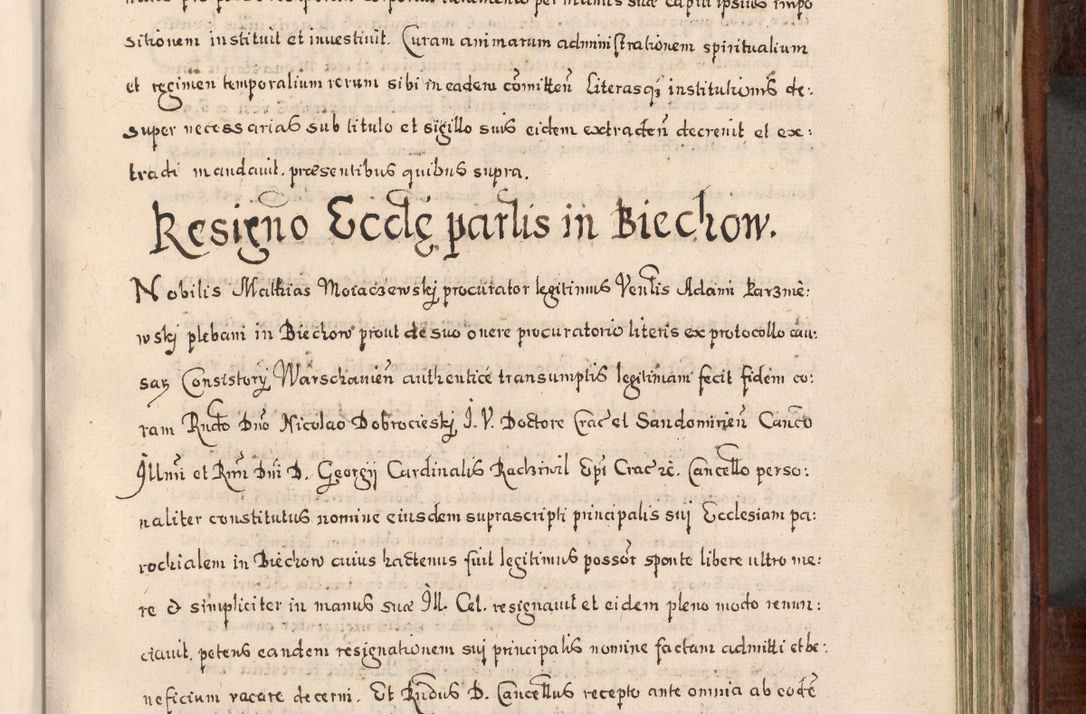 sitionem instituit et investivit. Curam animarum administrationem spiritualium
et regimen temporalium rerum sibi in eadem comitten̄ Literasq̃ institutionis de:
super necessarias sub titulo et sigillo suis eidem extraden̄ decrevit et ex:
tradi mandavit, præsentibus quibus supra.
Resigno Eccle parlis in Biechow.
Nobilis Mathias Moiaczewskj procurator legitimus Venlis Adami Karzniē:
wskj plebani in Biechow prout de suo onere procuratorio literis ex protocollo cau:
saȝ Consistorij Warschavien̄ authenticē transumptis legitimam fecit fidem co:
ram Rndo Dno Nicolao Dobrocieskj J. V. Doctore Crac et Sandomirien̄ Canco
Jllmi et Rmi Dni D. Georgij Cardinalis Radziwil Epi Crac ꝛc. Cancello perso:
naliter constitutus nomine eiusdem suprascripti principalis sui Ecclesiam pa:
rochialem in Biechow cuius hactenus fuit legitimus possōr sponte libere ultro me:
re & simpliciter in manus suæ Jll. Cel. resignavit et eidem pleno modo renun:
ciavit, petens eandem resignationem sui principalis nomine factam admitti et be:
neficium vacare decerni. Et Rndus D. Cancellus recepto ante omnia ab eodē